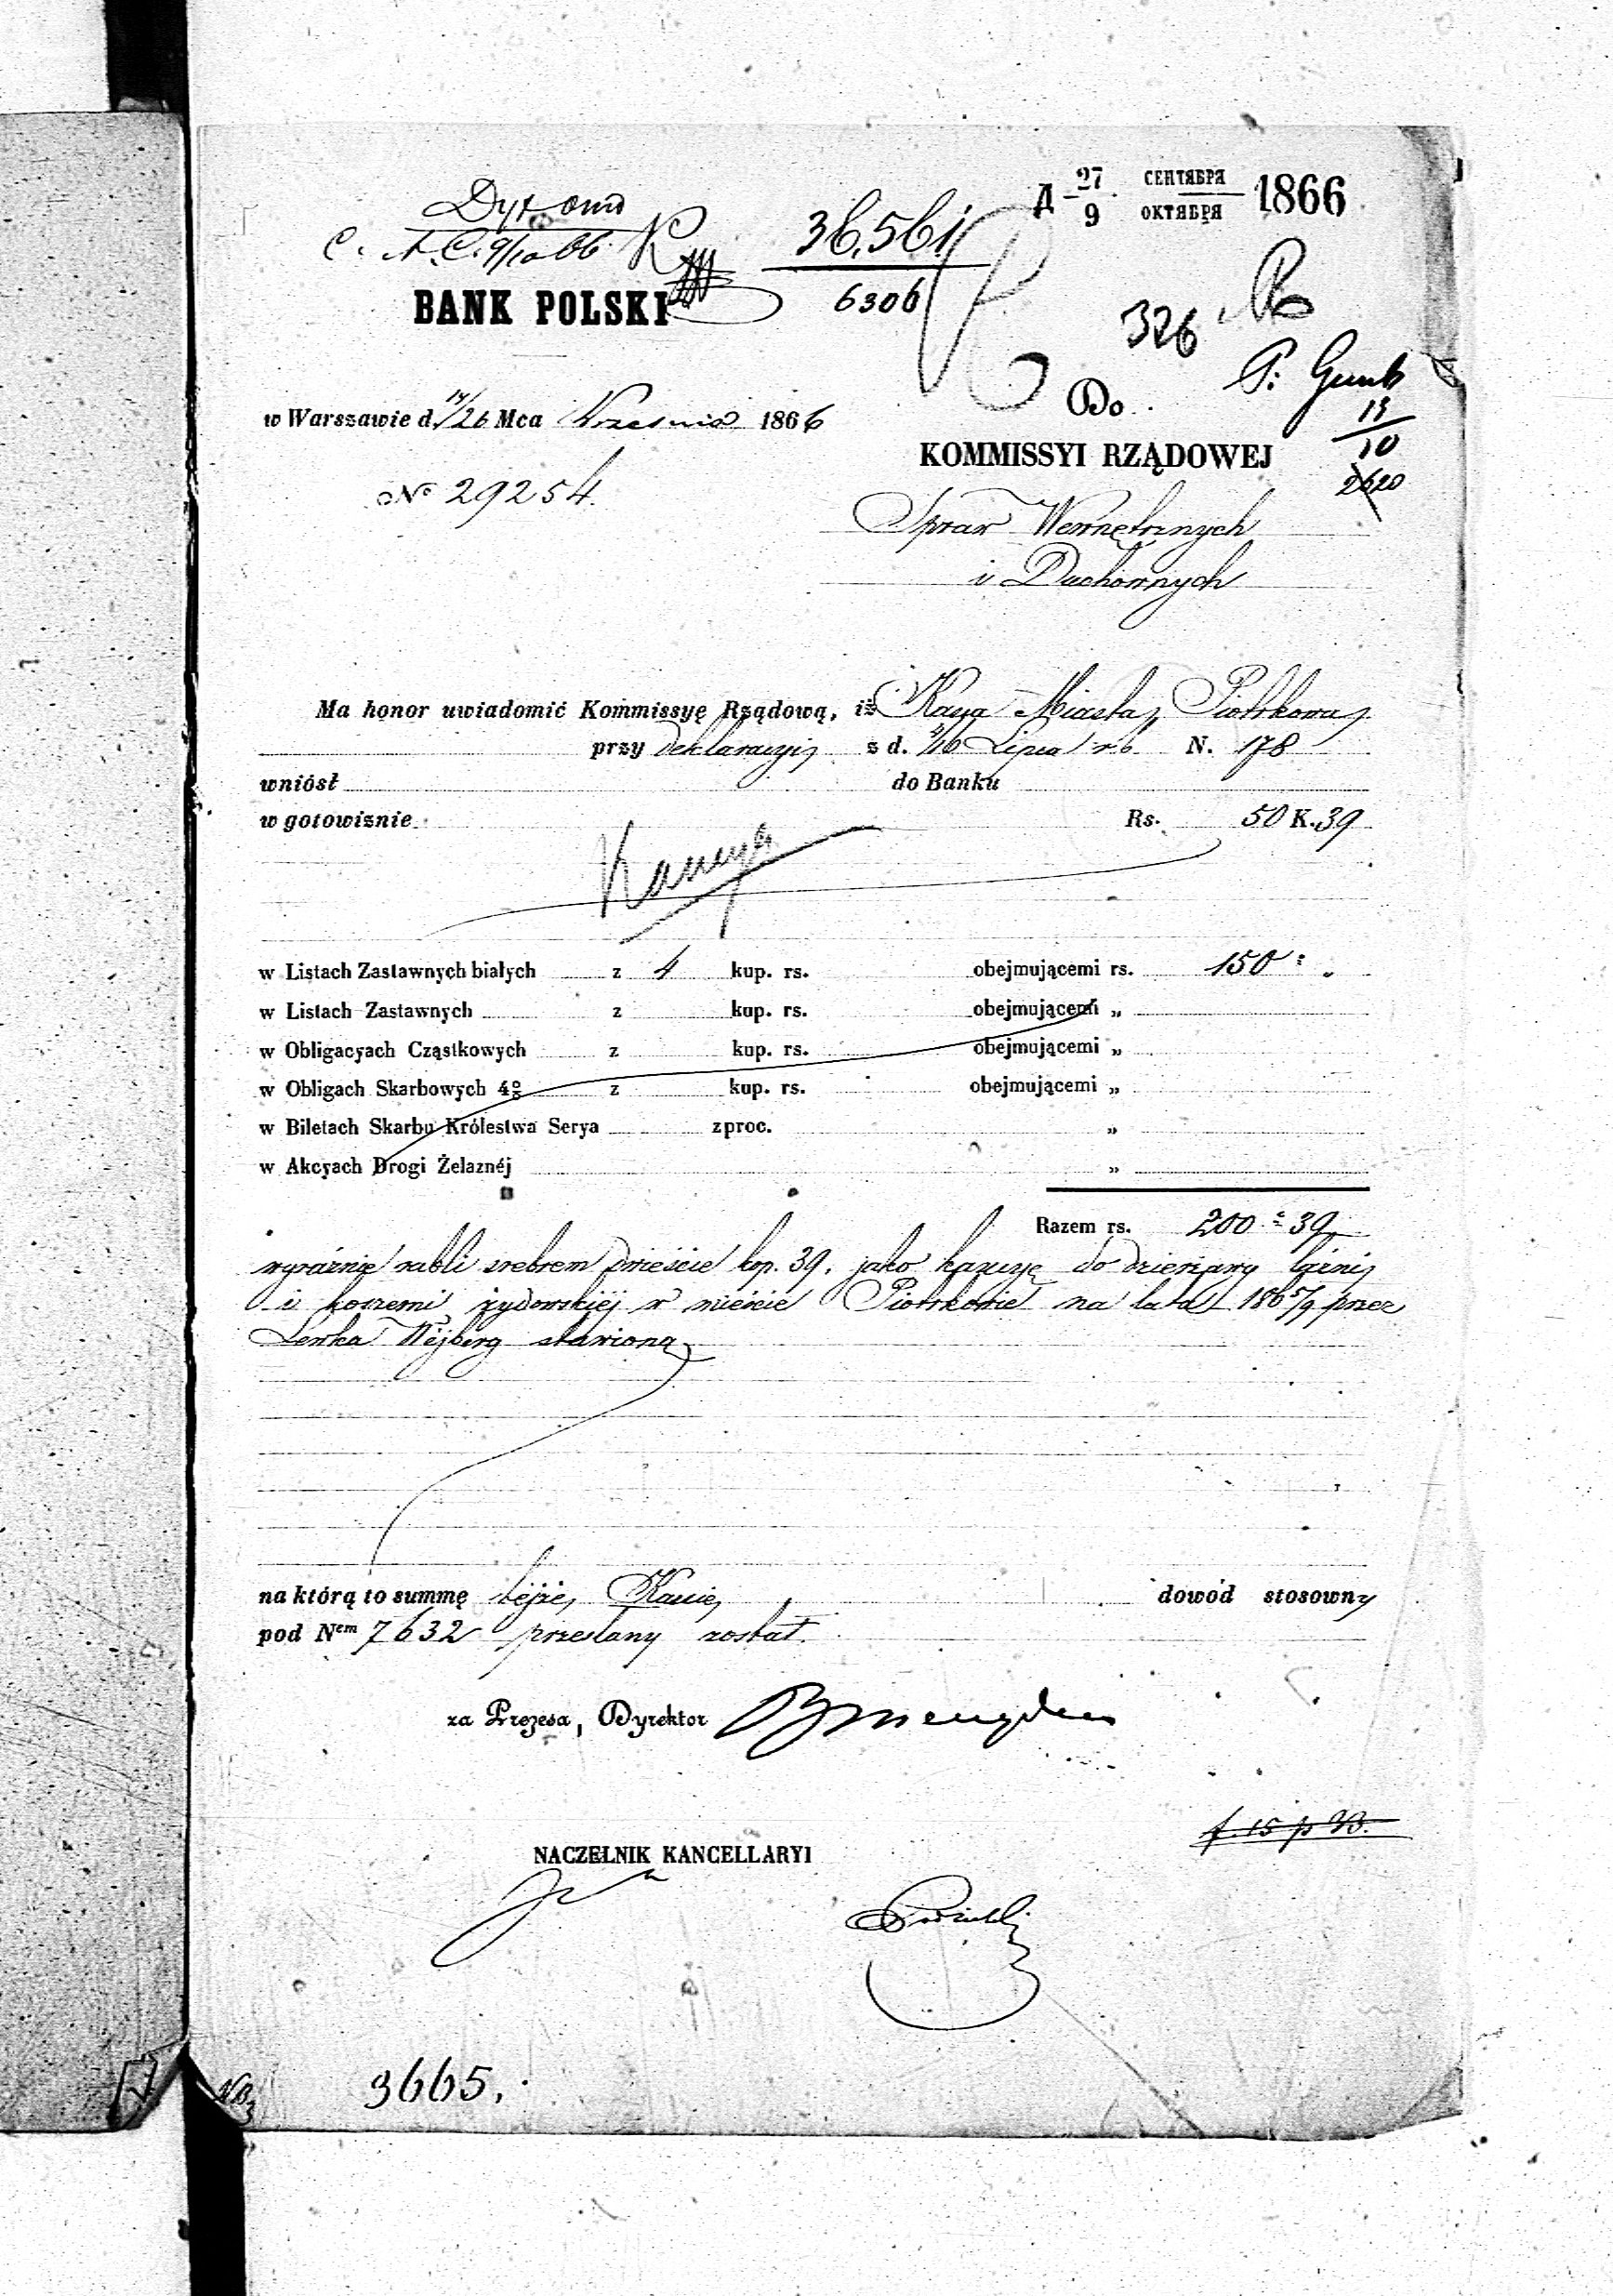 Д 27/9 СЕНТЯБРЯ/ОКТЯБРЯ 1866
36,561
6306
BANK POLSKI
326
P. Gumb
13/10
2620
w Warszawie d. 14/26 Mca Września 1866
Do
KOMMISSYI RZĄDOWEJ
No 29254.
Spraw Wewnętrznych
i Duchownych
Ma honor uwiadomić Kommissyę Rządową, iż Kassa Miasta Piotrkowa
przy deklaracyi z d. 4/16 Lipca r.b. N. 178
wniósł do Banku
w gotowiznie Rs. 50 K. 39
Kaucya
w Listach Zastawnych białych z 4 kup. rs. obejmującemi rs. 150 „
w Listach Zastawnych z kup. rs. obejmującemi „
w Obligacyach Cząstkowych z kup. rs. obejmującemi „
w Obligach Skarbowych 4% z kup. rs. obejmującemi „
w Biletach Skarbu Królestwa Serya z proc. „
w Akcyach Drogi Żelaznéj „
Razem rs. 200 39
wyraźnie rubli srebrem dwieście kop. 39. jako kaucyę do dzierżawy łaźni
i koszerni żydowskiéj w mieście Piotrkowie na lata 1865/9 przez
Lewka Wejberg stawioną
na którą to summę tejże Kassie dowód stosowny
pod Nem 7632 przesłany został.
za Prezesa, Dyrektor
f. 15 p 23.
NACZELNIK KANCELLARYI
3665.